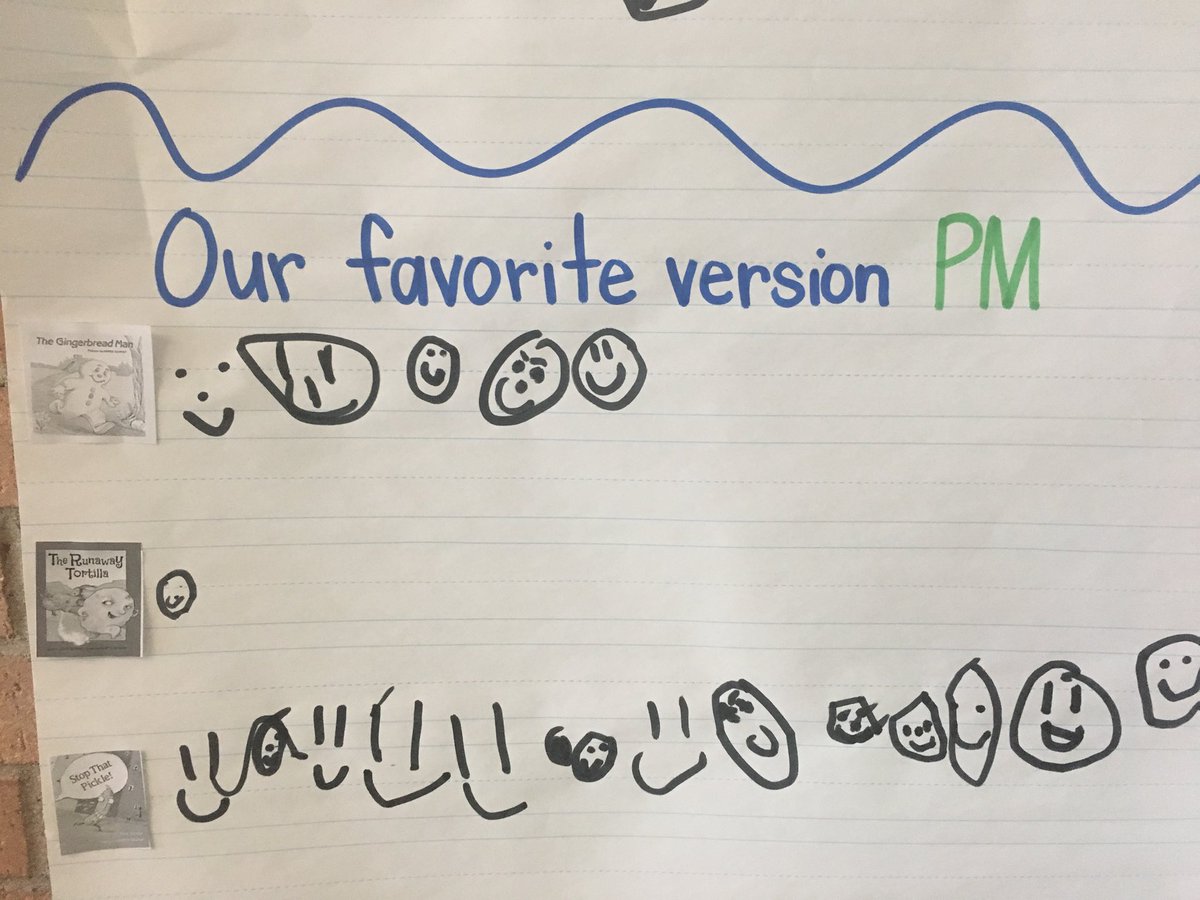 Our favorite version PM
The Gingerbread Man
The Runaway
Tortilla
Stop That
Pickle!